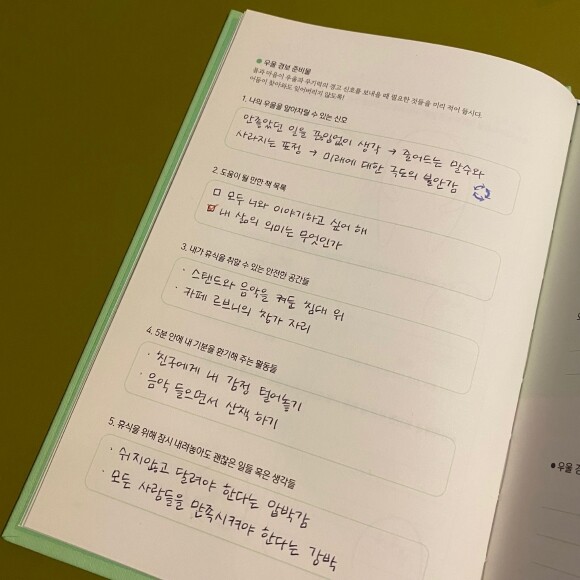 우울 경보 준비물
몸과 마음이 우울과 무기력의 경고 신호를 보내올 때 필요한 것들을 미리 적어 둡시다.
어둠이 찾아와도 잊어버리지 않도록!
1. 나의 우울을 알아차릴 수 있는 신호
안좋았던 일을 끊임없이 생각 → 줄어드는 말수와
사라지는 표정 → 미래에 대한 극도의 불안감
2. 도움이 될 만한 책 목록
모두 너와 이야기하고 싶어 해
내 삶의 의미는 무엇인가
3. 내가 휴식을 취할 수 있는 안전한 공간들
· 스탠드와 음악을 켜둔 침대 위
· 카페 르브니의 창가 자리
4. 5분 안에 내 기분을 환기해 주는 활동들
· 친구에게 내 감정 털어놓기
· 음악 들으면서 산책 하기
5. 휴식을 위해 잠시 내려놓아도 괜찮은 일들 혹은 생각들
· 쉬지않고 달려야 한다는 압박감
· 모든 사람들을 만족시켜야 한다는 강박
● 우울 경